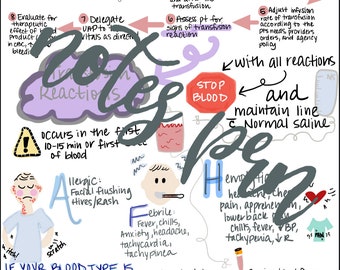 transfusion
⑧ Evaluate for
therapeutic
effect of blood
product
in CBC, time
bleeding
⑦ Delegate
UAP to
vitals as directed
⑥ Assess pt for
signs of transfusion
reaction
⑤ Adjust infusion
rate of transfusion
according to the
pts needs, providers
orders, and agency
policy
Transfusion
Reactions
STOP
BLOOD
with all reactions
and
maintain line
c̄ Normal saline
OCCURS in the first
10-15 min or first
of blood
Allergic:
Facial flushing
Hives/rash
Itchy!
scratch
Febrile:
Fever, chills,
Anxiety, headache,
tachycardia,
tachypnea
headache, chest
pain, apprehension,
lower back pain
chills, fever, ↓BP,
tachypenia, ↓R
IF YOUR BLOOD TYPE IS
notes
pen